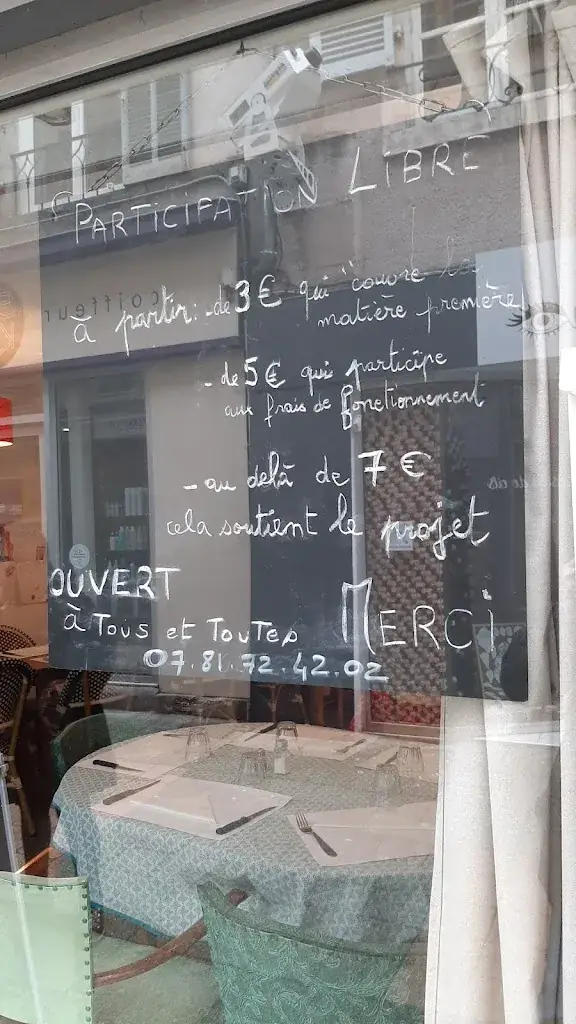 PARTICIPATION LIBRE
à partir: -de 3€ qui "couvre la
matière première
coiffeur
- de 5€ qui participe
aux frais de fonctionnement
- au delà de 7€
cela soutient le projet
OUVERT
à Tous et Toutes MERCi
07.81.72.42.02